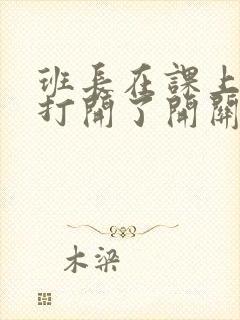 班長在課上
打開了開關
木梁